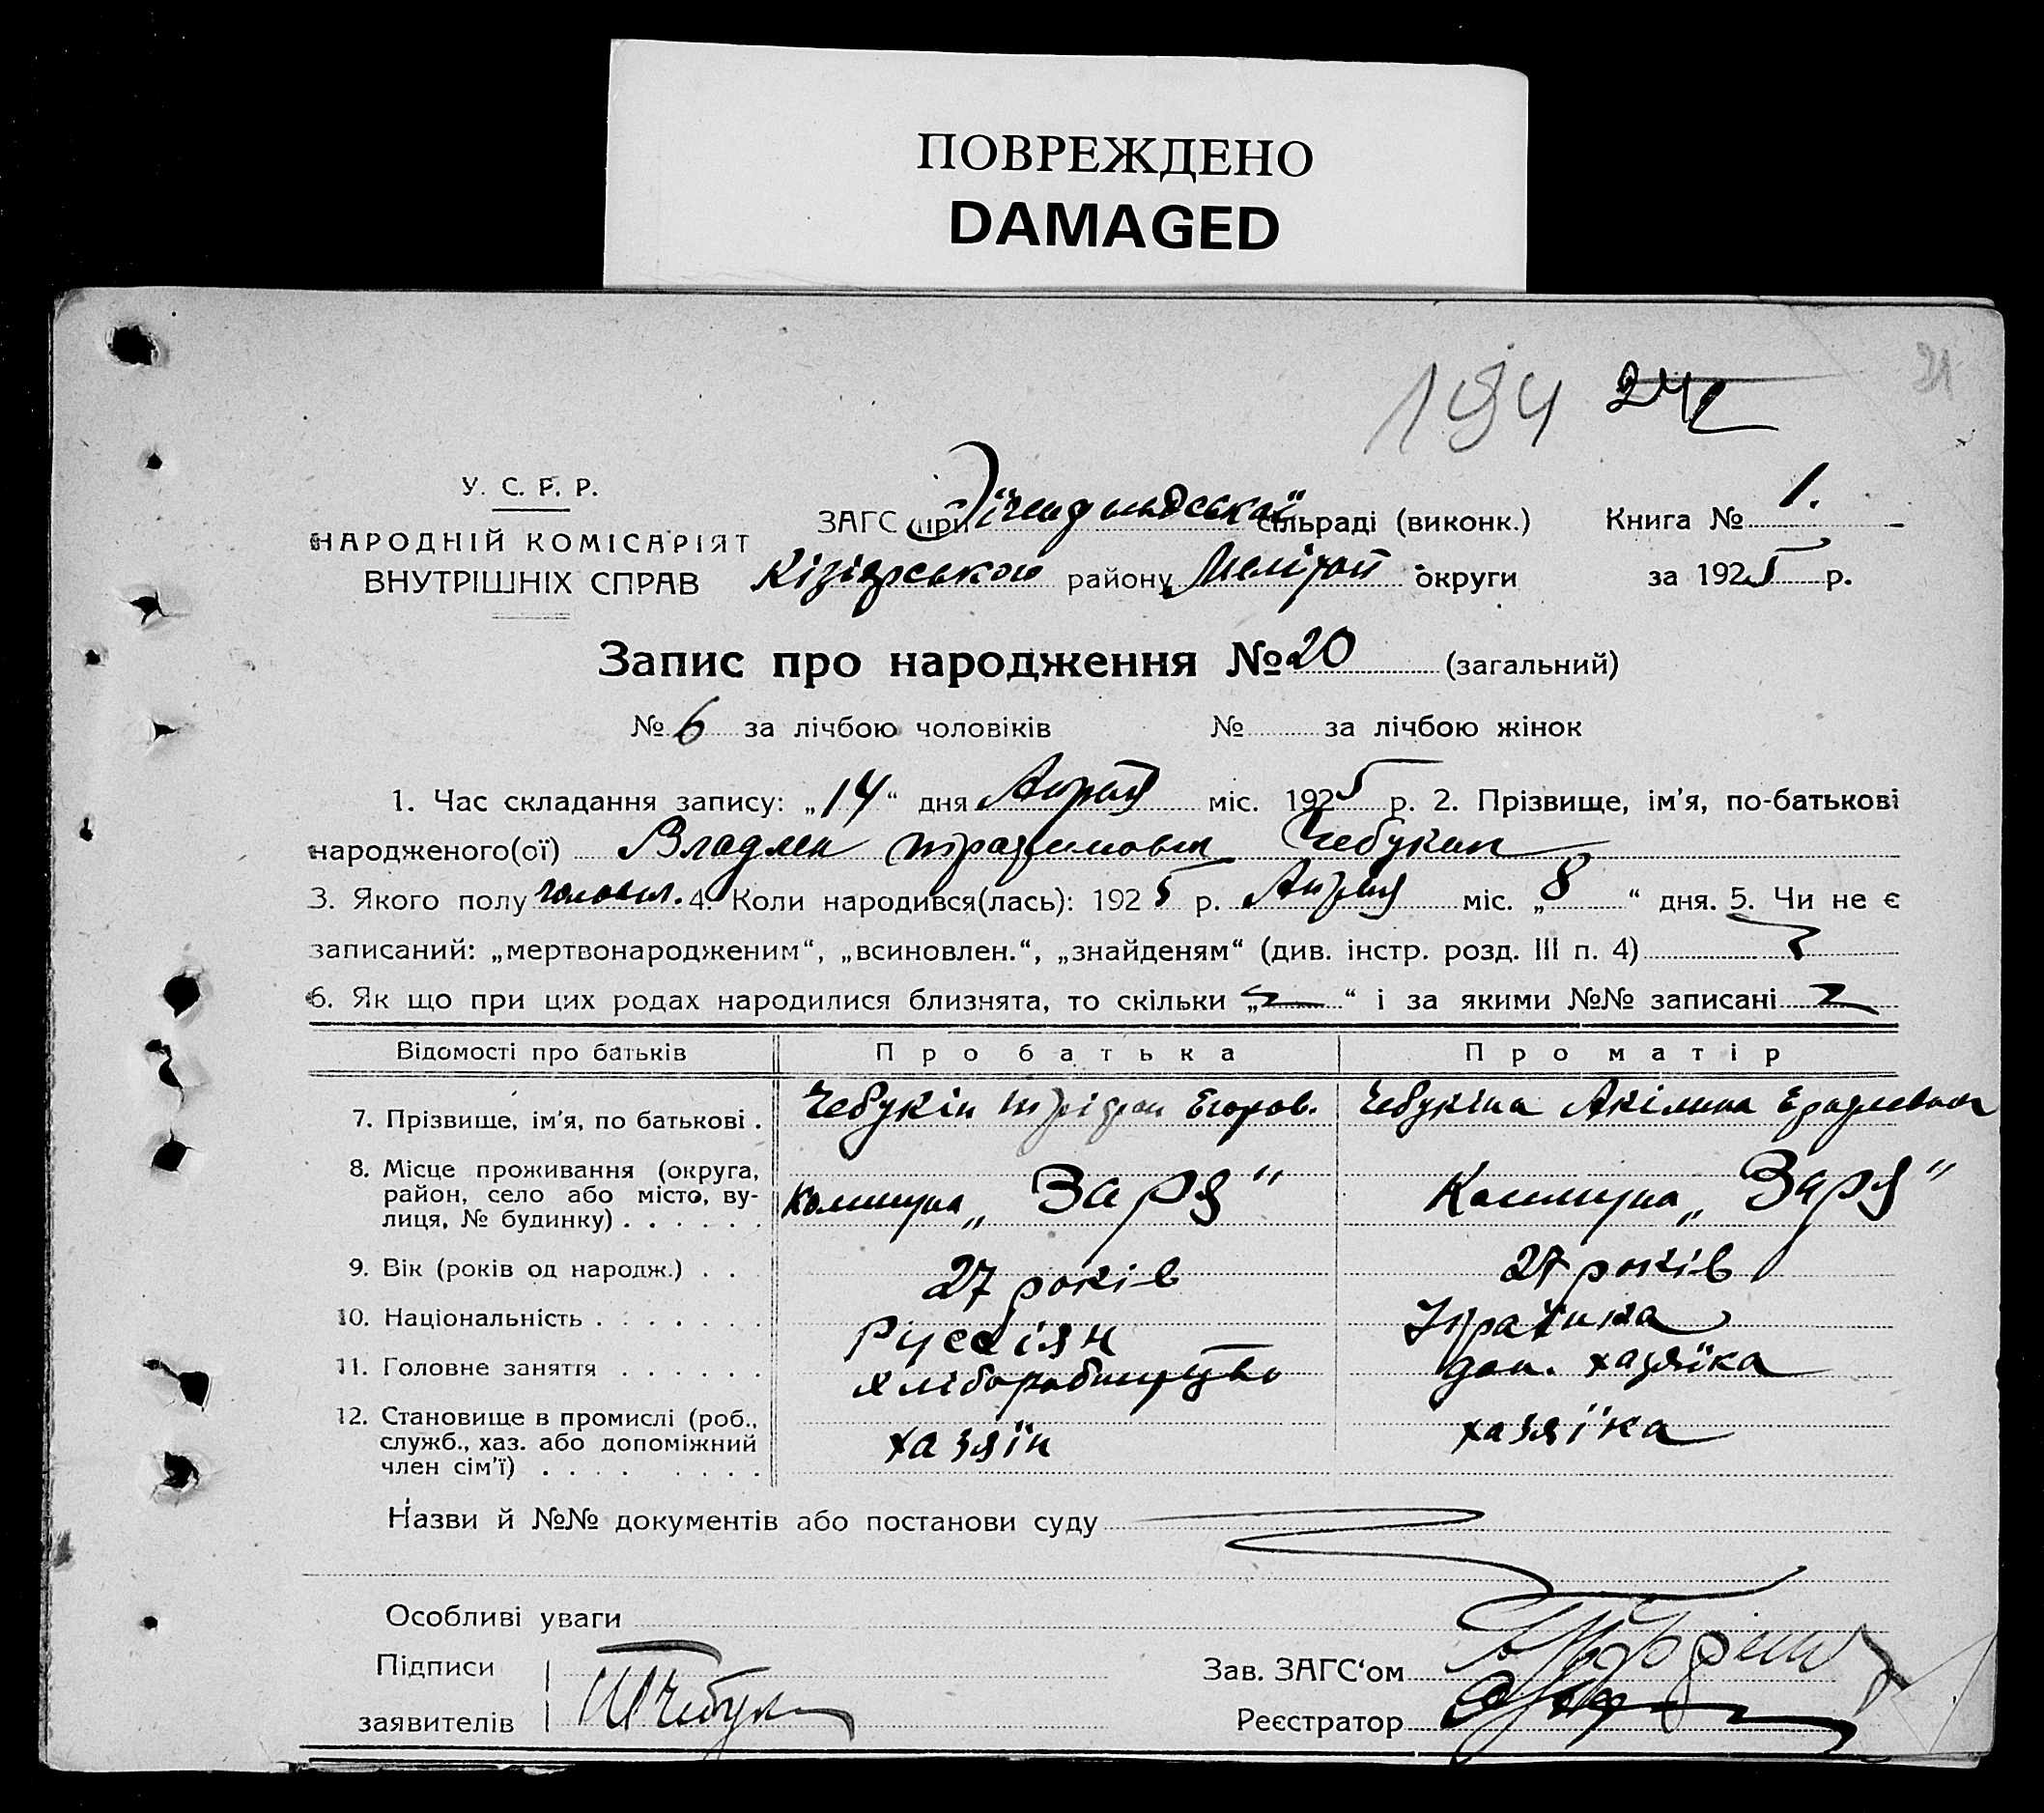 ПОВРЕЖДЕНО
DAMAGED
194 242
21
У. С. Р. Р.
НАРОДНІЙ КОМІСАРІЯТ
ВНУТРІШНІХ СПРАВ
ЗАГС при сільраді (виконк.) Книга № 1.
Кізіярською району Мелітоп округи за 1925 р.
Запис про народження № 20 (загальний)
№ 6 за лічбою чоловіків № за лічбою жінок
1. Час складання запису: „14“ дня міс. 1925 р. 2. Прізвище, ім'я, по-батькові
народженого(ої) Владлен Чебукин
3. Якого полу 4. Коли народився(лась): 1925 р. міс. „8“ дня. 5. Чи не є
записаний: „мертвонародженим“, „всиновлен.“, „знайденям“ (див. інстр. розд. III п. 4)
6. Як що при цих родах народилися близнята, то скільки „ “ і за якими №№ записані
Відомості про батьків Про батька Про матір
7. Прізвище, ім'я, по батькові . Чебукін Егоров. Чебукіна Акілина
8. Місце проживання (округа,
район, село або місто, ву-
лиця, № будинку) . . . . . . Коммуна „Заря“ Коммуна „Заря“
9. Вік (років од народж.) . . 27 років 27 років
10. Національність . . . . . . . Руссіян Українка
11. Головне заняття . . . . . . хліборобництво дом. хазяїка
12. Становище в промислі (роб.,
служб., хаз. або допоміжний
член сім'ї) . . . . . . . . хазяїн хазяїка
Назви й №№ документів або постанови суду
Особливі уваги
Підписи
заявителів
Зав. ЗАГС‘ом
Реєстратор